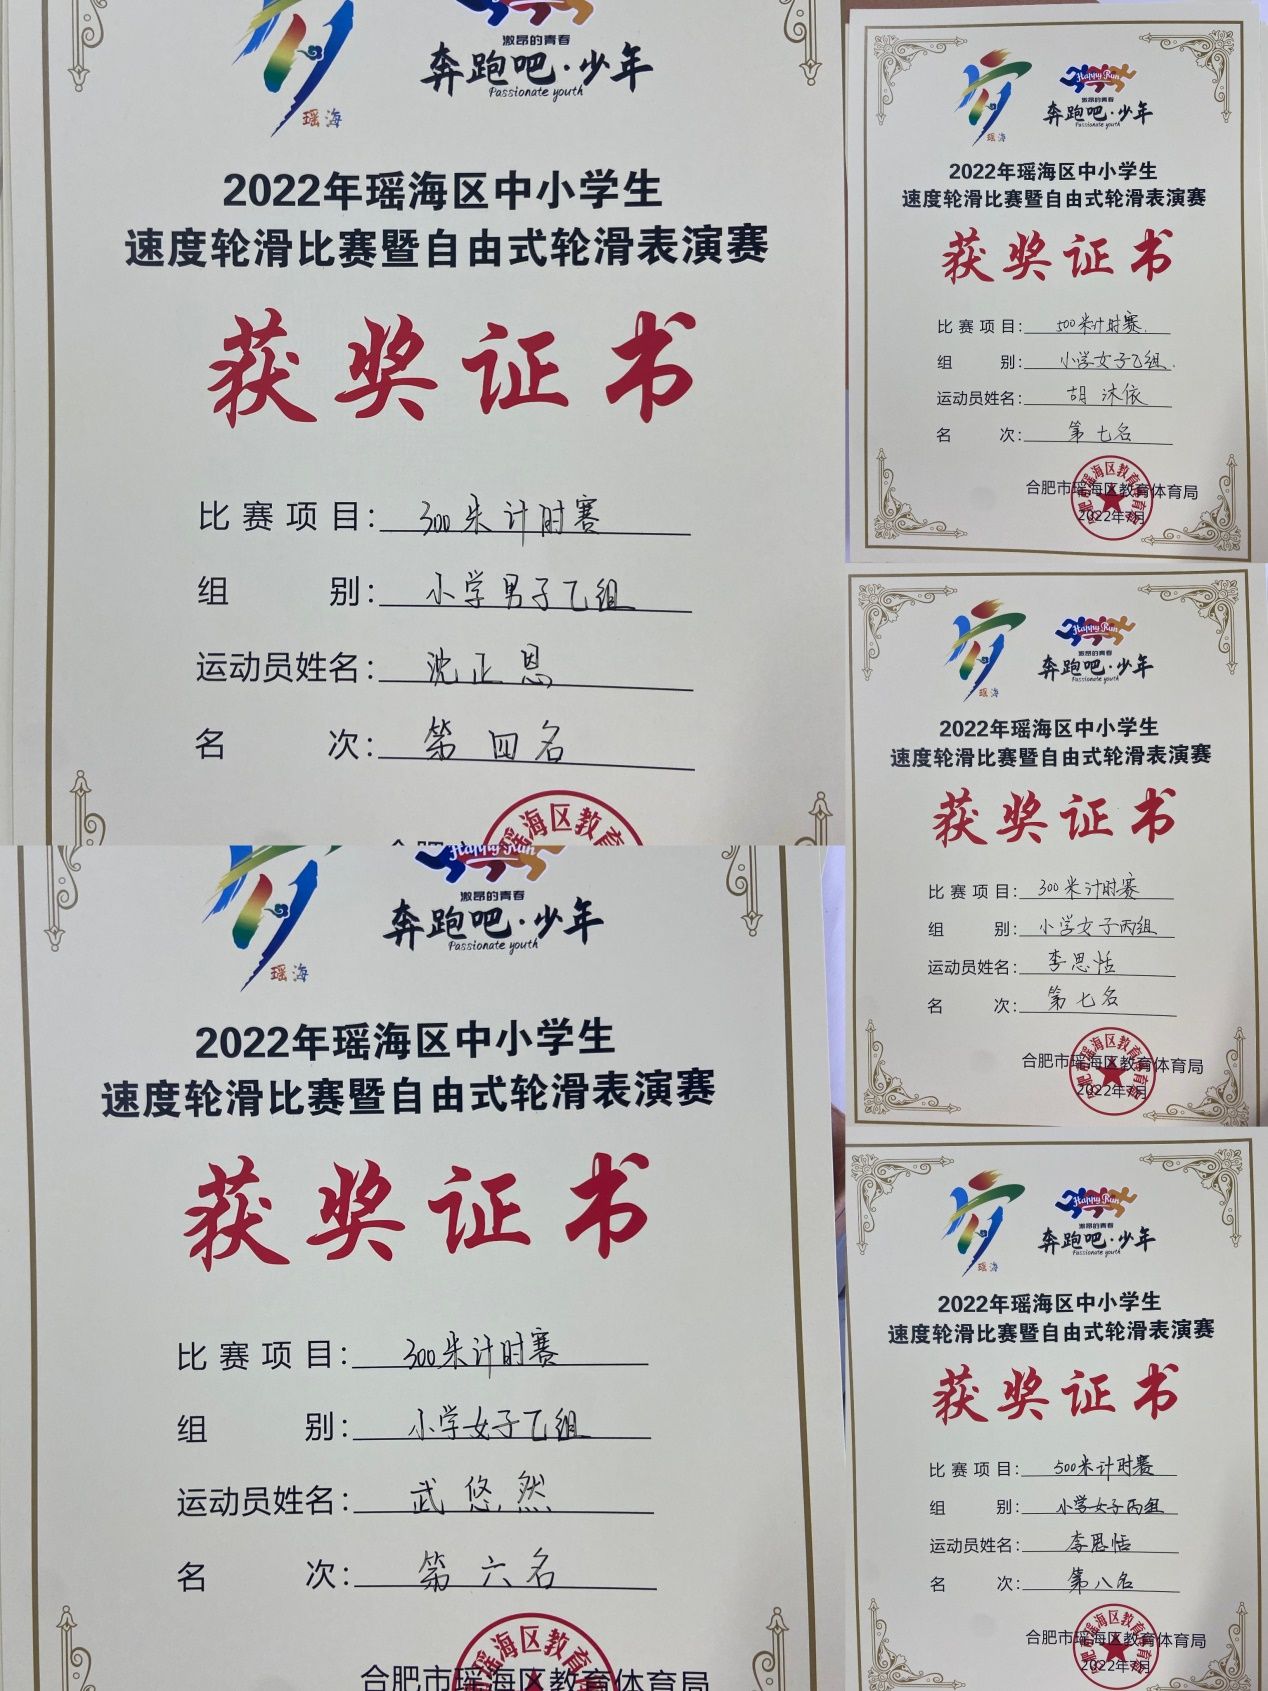 瑶海
激昂的青春
奔跑吧·少年
Passionate youth
2022年瑶海区中小学生
速度轮滑比赛暨自由式轮滑表演赛
获奖证书
比赛项目：300米计时赛
组别：小学男子乙组
运动员姓名：沈正恩
名次：第四名
瑶海区教育
Happy Run
激昂的青春
奔跑吧·少年
Passionate youth
瑶海
2022年瑶海区中小学生
速度轮滑比赛暨自由式轮滑表演赛
获奖证书
比赛项目：300米计时赛
组别：小学女子乙组
运动员姓名：武悠然
名次：第六名
瑶海区教育
合肥市瑶海区教育体育局
Happy Run
激昂的青春
奔跑吧·少年
Passionate youth
瑶海
2022年瑶海区中小学生
速度轮滑比赛暨自由式轮滑表演赛
获奖证书
比赛项目：500米计时赛
组别：小学女子乙组
运动员姓名：胡沐依
名次：第七名
合肥市瑶海区教育体育局
2022年7月
Happy Run
激昂的青春
奔跑吧·少年
Passionate youth
瑶海
2022年瑶海区中小学生
速度轮滑比赛暨自由式轮滑表演赛
获奖证书
比赛项目：300米计时赛
组别：小学女子丙组
运动员姓名：李思恬
名次：第七名
合肥市瑶海区教育体育局
2022年7月
Happy Run
激昂的青春
奔跑吧·少年
Passionate youth
瑶海
2022年瑶海区中小学生
速度轮滑比赛暨自由式轮滑表演赛
获奖证书
比赛项目：500米计时赛
组别：小学女子丙组
运动员姓名：李思恬
名次：第八名
合肥市瑶海区教育体育局
2022年7月